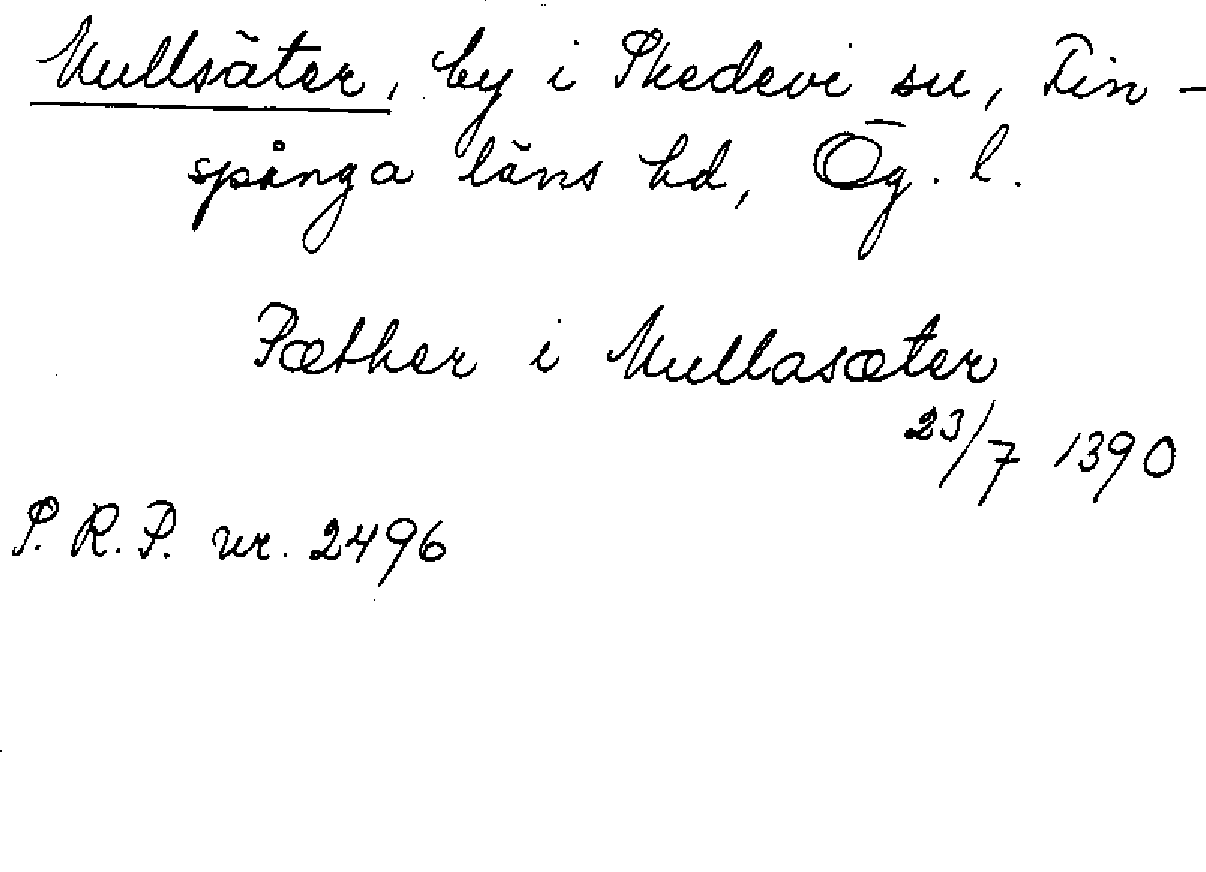 Mullsäter, by i Skedevi sn, Fin-
spånga läns hd, Ög. l.
Pæther i Mullasæter
23/7 1390
S. R. P. nr. 2496